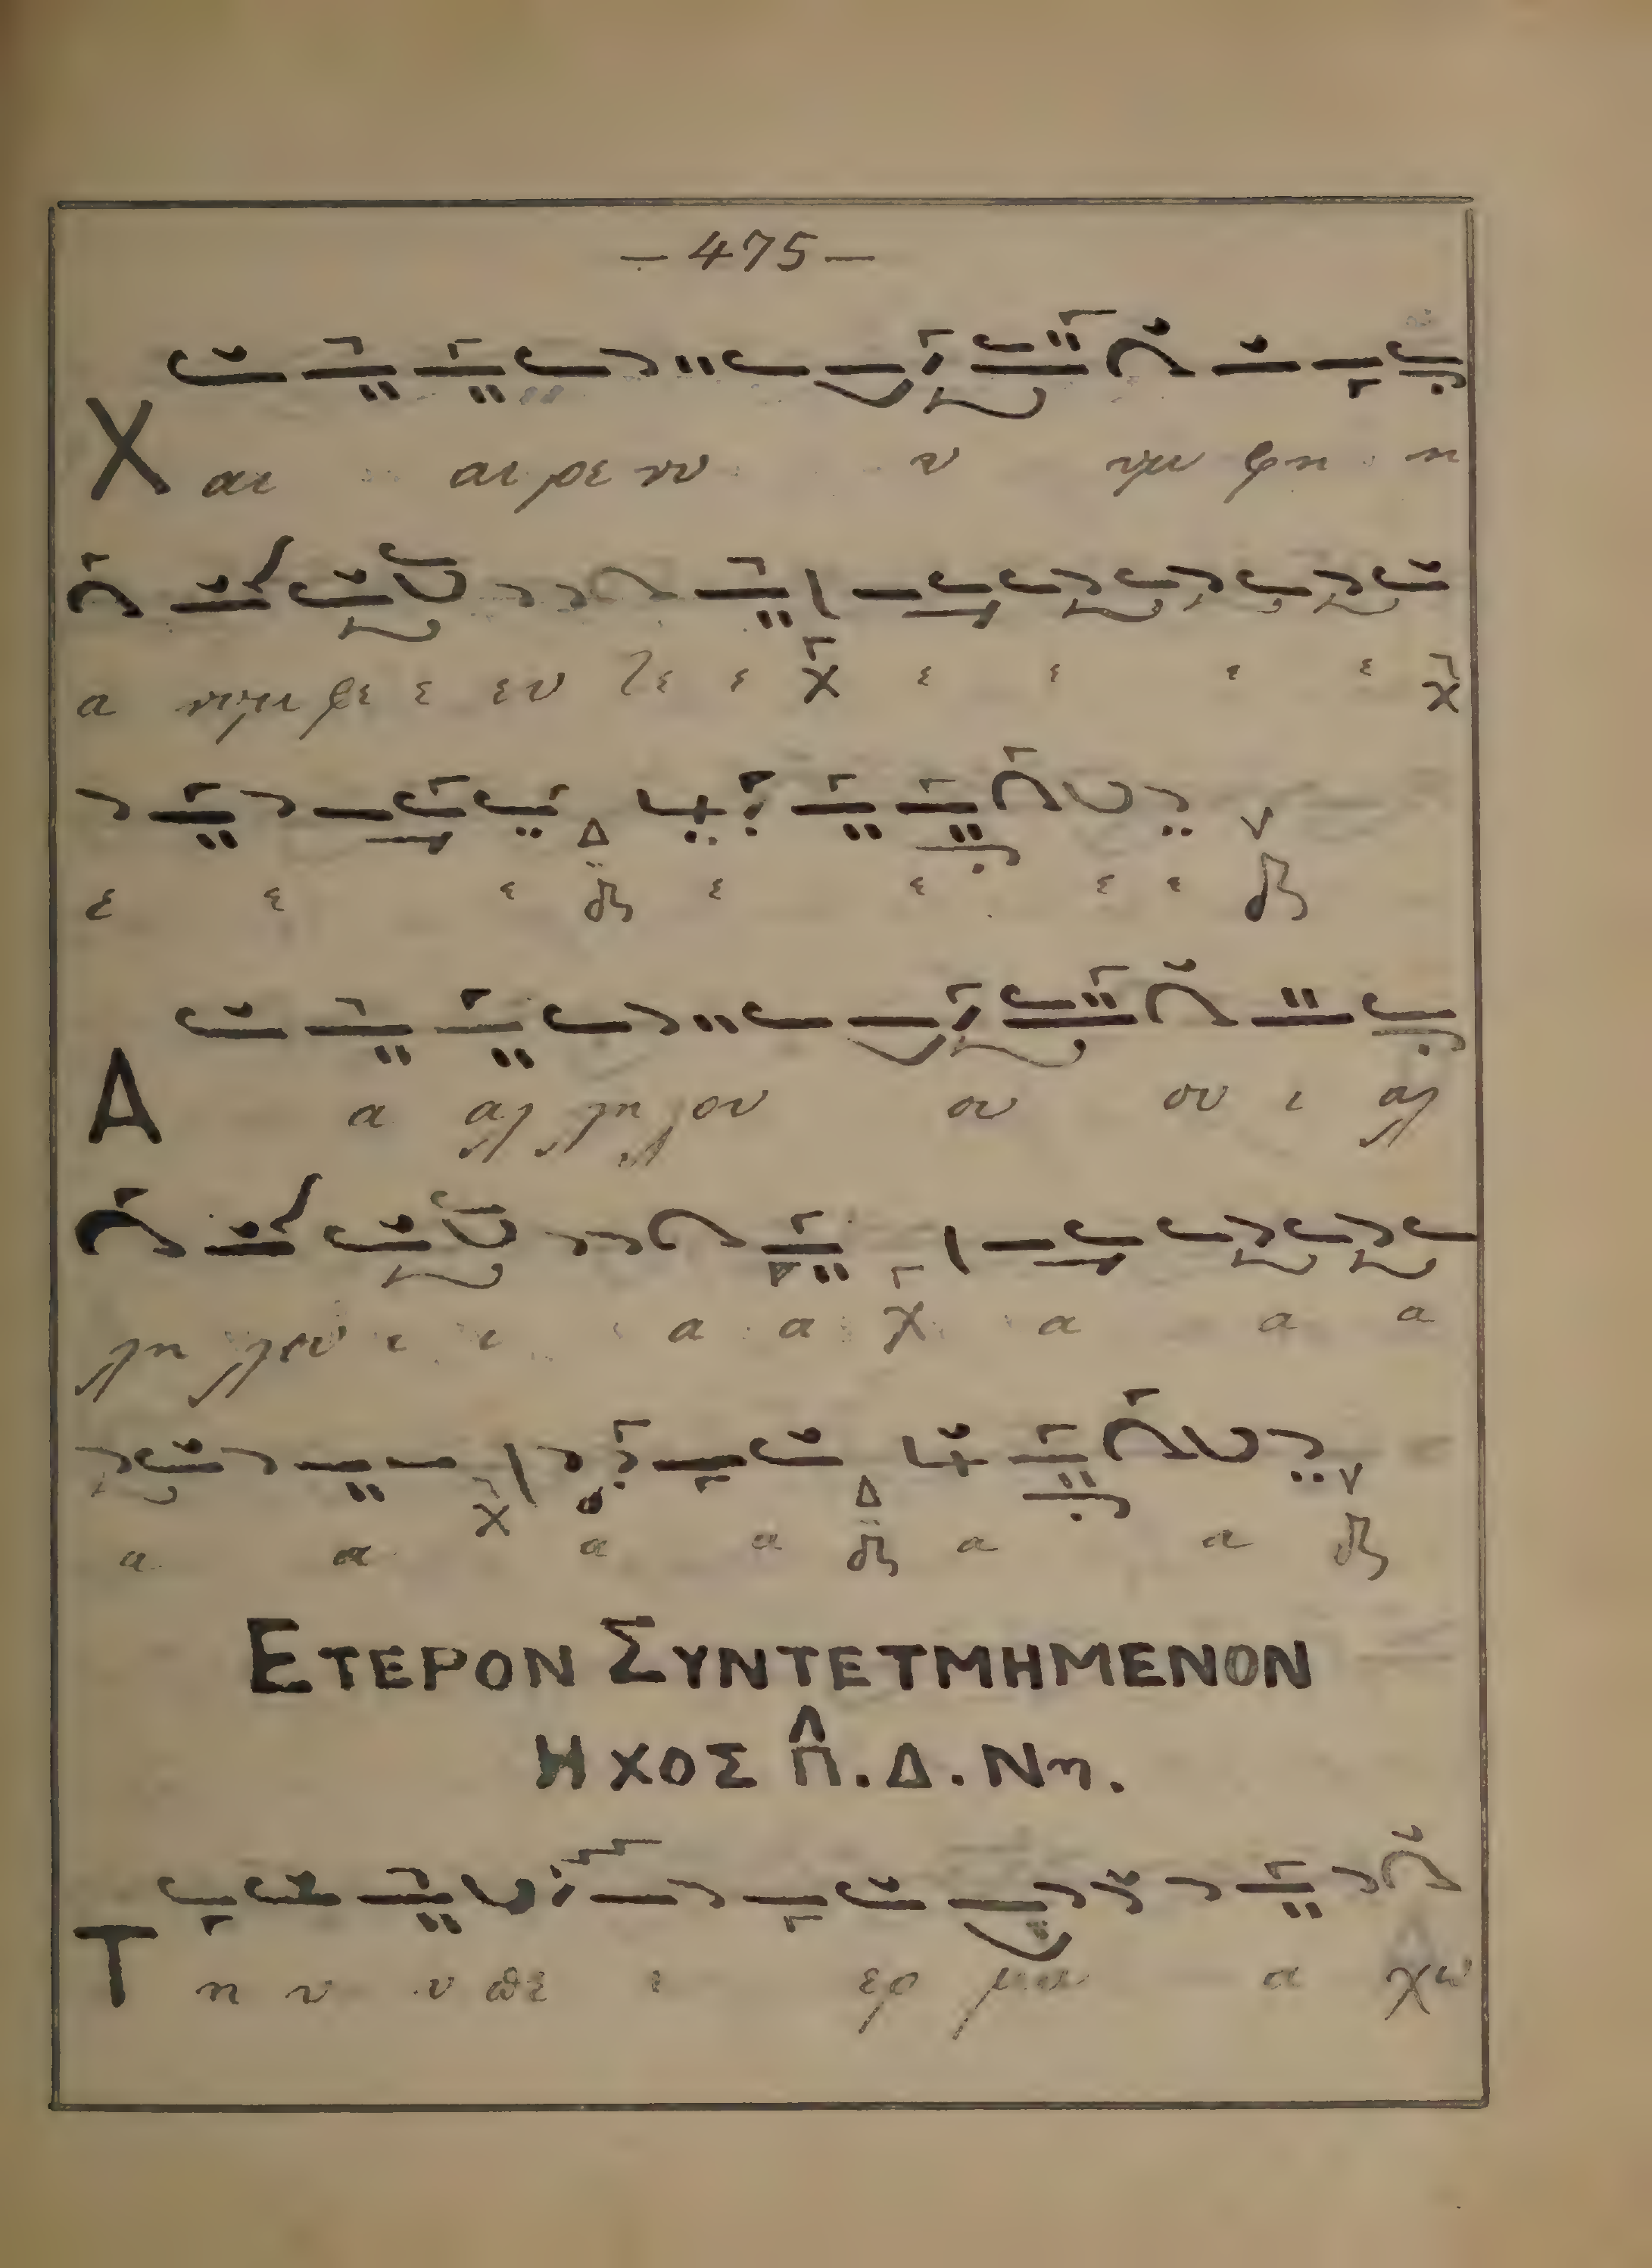 — 475 —
Χ αι αι ρε νυ υ υμ φη η
α νυμ φε ε ευ τε ε χ ε ε ε ε χ
ε ε ε Δ ε ε ε ε
Α α αλ λη λου ου ου ι αλ
λη λου ι ι α α χ α α α
α α χ α α Δ α α
ΕΤΕΡΟΝ ΣΥΝΤΕΤΜΗΜΕΝΟΝ
ΗΧΟΣ Π. Δ. Νη.
Τ η υ υ πε ε ερ μα α χω